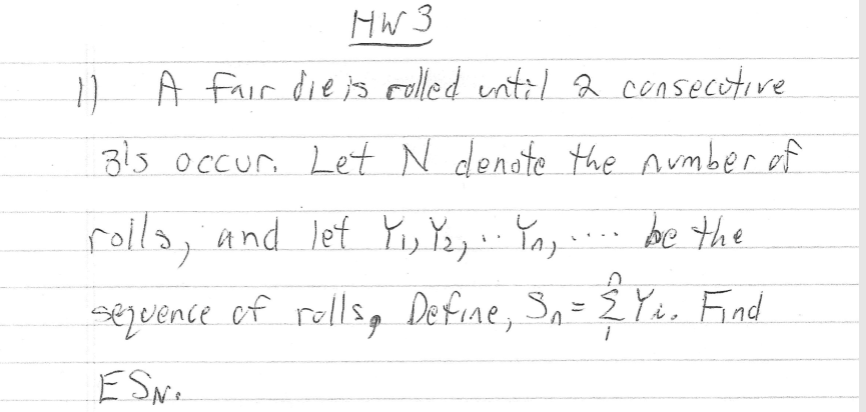 HW 3
1) A fair die is rolled until 2 consecutive
3's occur. Let N denote the number of
rolls, and let Y₁, Y₂, .. Yₙ, .... be the
sequence of rolls, Define, Sₙ = Σ₁ⁿ Yᵢ. Find
E S_N.